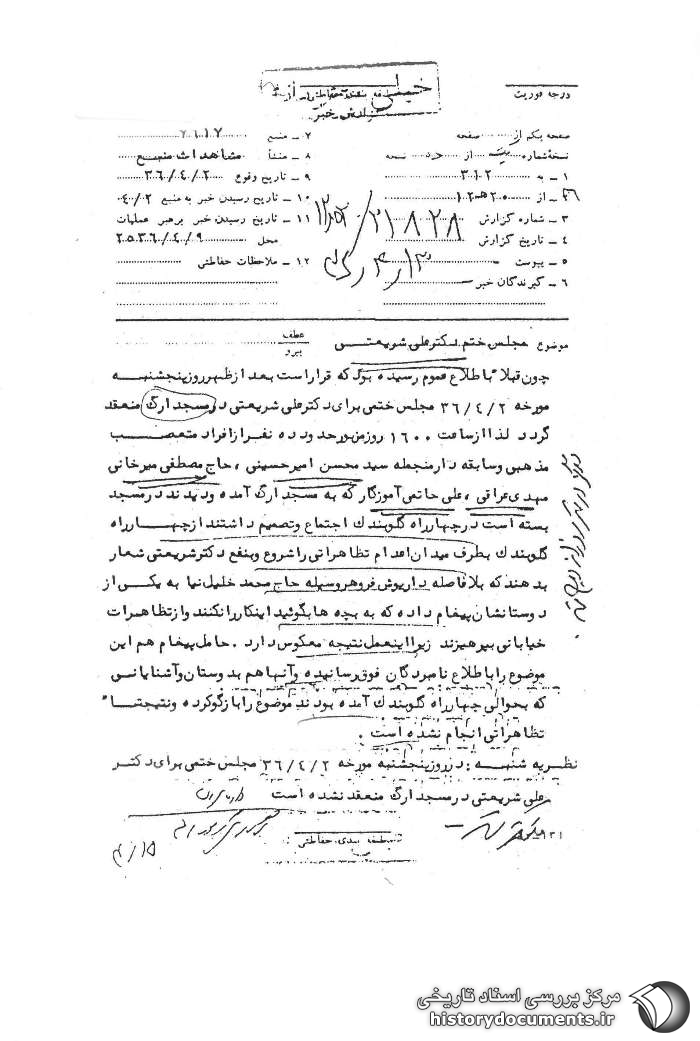 خیلی
گزارش خبر
درجه فوریت
صفحه یکم از صفحه
نسخه شماره از نسخه
۱ – به ۳۱۲
از ۲۰ ه ۱۲
۳ – شماره گزارش ۳۱۸۲۸
۴ – تاریخ گزارش
۵ – پیوست
۶ – گیرندگان خبر
۷ – منبع ۷۱۱۷
۸ – منشأ مشاهدات منبع
۹ – تاریخ وقوع ۳۶/۴/۲
۱۰ – تاریخ رسیدن خبر به منبع
۱۱ – تاریخ رسیدن خبر برهبر عملیات
محل ۲۵۳۶/۴/۹
۱۲ – ملاحظات حفاظتی
موضوع مجلس ختم دکتر علی شریعتی
عطف
پیرو
چون قبلا" باطلاع عموم رسیده بود که قرار است بعد از ظهر روز پنجشنبه
مورخه ۳۶/۴/۲ مجلس ختمی برای دکتر علی شریعتی در مسجد ارگ منعقد
گردد لذا از ساعت ۱۶۰۰ روز مزبور حدود ده نفر از افراد متعصب
مذهبی و سابقه دار منجمله سید محسن امیرحسینی ، حاج مصطفی میرخانی
مهدی عراقی ، علی حاتمی آموزگار که به مسجد ارگ آمده و دیدند در مسجد
بسته است در چهارراه گلوبندک اجتماع و تصمیم داشتند از چهارراه
گلوبندک بطرف میدان اعدام تظاهراتی را شروع و بنفع دکتر شریعتی شعار
بدهند که بلافاصله داریوش فروهر وسیله حاج محمد خلیل نیا به یکی از
دوستانشان پیغام داده که به بچه ها بگوئید اینکار را نکنند و از تظاهرات
خیابانی بپرهیزند زیرا اینعمل نتیجه معکوس دارد . حامل پیغام هم این
موضوع را باطلاع نامبردگان فوق رسانیده و آنها هم بدوستان و آشنایانی
که بحوالی چهارراه گلوبندک آمده بودند موضوع را بازگو کرده و نتیجتا"
تظاهراتی انجام نشده است .
نظریه شنبه : در روز پنجشنبه مورخه ۳۶/۴/۲ مجلس ختمی برای دکتر
علی شریعتی در مسجد ارگ منعقد نشده است
طبقه بندی حفاظتی
۴/۱۵
مرکز بررسی اسناد تاریخی
historydocuments.ir